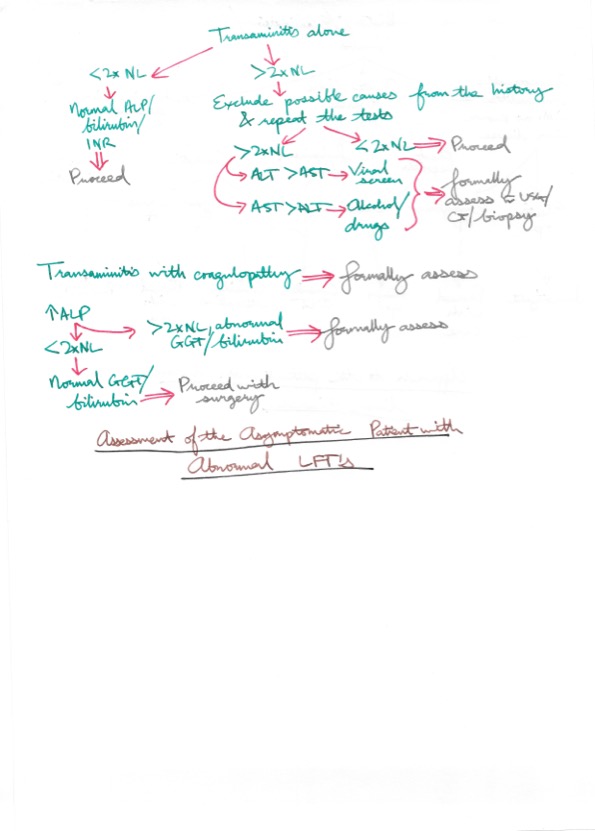 Transaminitis alone
<2xNL
>2xNL
Normal ALP/
bilirubin/
INR
Proceed
Exclude possible causes from the history
& repeat the tests
>2xNL
<2xNL
Proceed
ALT >AST
Viral
screen
AST>ALT
Alcohol/
drugs
formally
assess c̄ USG/
CT/biopsy
Transaminitis with coagulopathy
formally assess
↑ALP
>2xNL, abnormal
GGT/bilirubin
formally assess
<2xNL
Normal GGT/
bilirubin
Proceed with
surgery
Assessment of the Asymptomatic Patient with
Abnormal LFT's